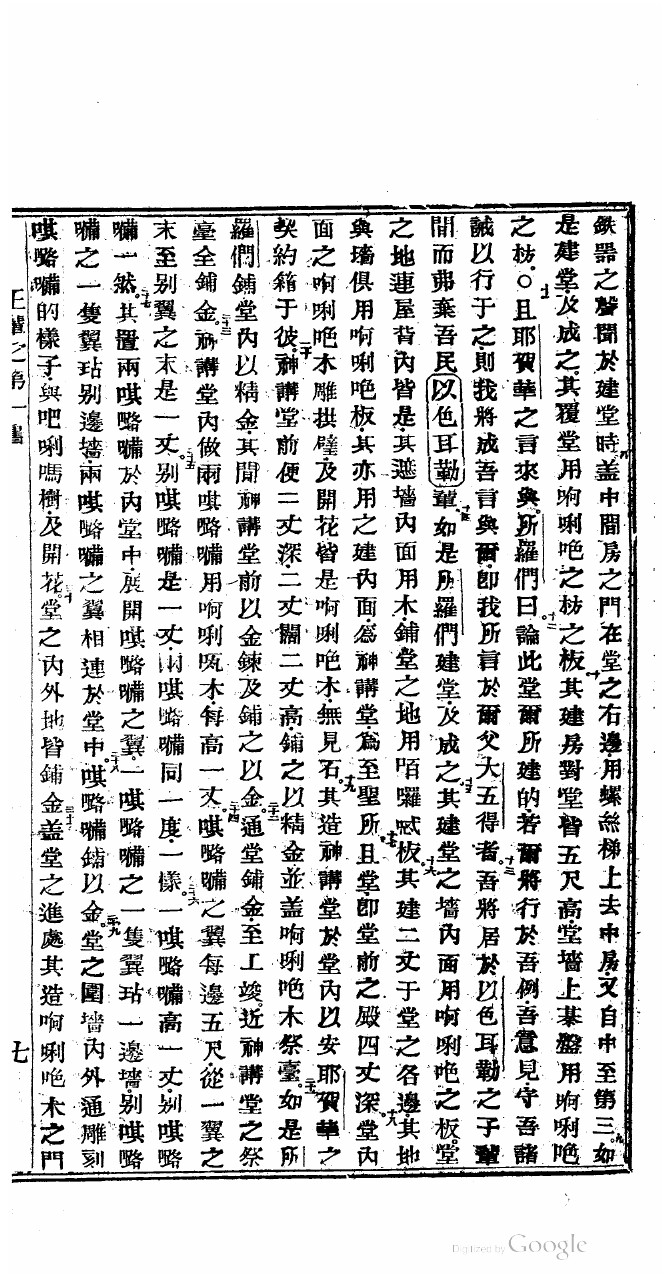 鉄器之聲聞於建堂時蓋中間房之門在堂之右邊用螺絲梯上去中房又自中至第三如
是建堂及成之其覆堂用啊唎吧之枋之板其建房對堂皆五尺高堂墻上基盤用啊唎吧
之枋○且耶賀華之言來與所羅們曰論此堂爾所建的若爾將行於吾例吾意見守吾諸
誡以行于之則我將成吾言與爾卽我所言於爾父大五得者吾將居於以色耳勒之子輩
間而弗棄吾民以色耳勒輩如是所羅們建堂及成之其建堂之墻內面用啊唎吧之板堂
之地連屋背內皆是其遮墻內面用木鋪堂之地用咟囉板其建二丈于堂之各邊其地
與墻俱用啊唎吧板其亦用之建內面為神講堂為至聖所且堂卽堂前之殿四丈深堂內
面之啊唎吧木雕拱璧及開花皆是啊唎吧木無見石其造神講堂於堂內以安耶賀華之
契約箱于彼神講堂前便二丈深二丈闊二丈高鋪之以精金並蓋啊唎吧木祭臺如是所
羅們鋪堂內以精金其間神講堂前以金鍊及鋪之以金通堂鋪金至工竣近神講堂之祭
臺全鋪金神講堂內做兩㖵嚕㘔用啊唎瓦木每高一丈㖵嚕㘔之翼每邊五尺從一翼之
末至别翼之末是一丈别㖵嚕㘔是一丈兩㖵嚕㘔同一度一樣一㖵嚕㘔高一丈别㖵嚕
㘔一然其置兩㖵嚕㘔於內堂中展開㖵嚕㘔之翼一㖵嚕㘔之一隻翼玷一邊墻别㖵嚕
㘔之一隻翼玷别邊墻兩㖵嚕㘔之翼相連於堂中㖵嚕㘔鋪以金堂之圍墻內外通雕刻
㖵嚕㘔的樣子與吧唎嗎樹及開花堂之內外地皆鋪金蓋堂之進處其造啊唎吧木之門
王輩之第一書
七
Digitized by Google